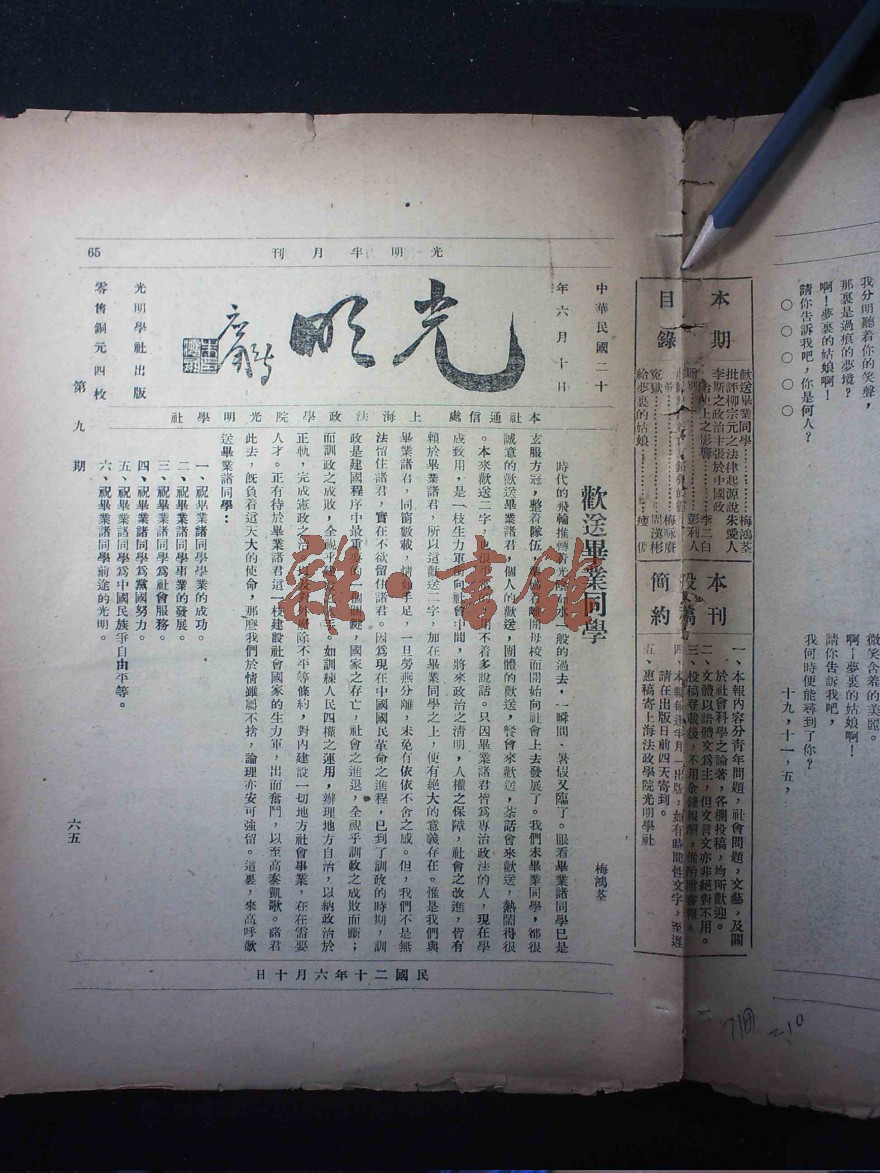 光明半月刊
65
中華民國二十
年六月十日
光明
光明學社出版
零售銅元四枚
第九期
本社通信處 上海法政學院光明學社
本期
目錄
歡送畢業同學⋯⋯⋯⋯⋯梅鴻荃
批評柳宗元之法律起源說 朱愛人
李斯之政治主張於中國政
治史上之影響⋯⋯⋯李二白
彭利人
梅咏府
冤獄⋯⋯⋯⋯周漢彬
給夢裏的姑娘⋯⋯⋯⋯
本刊
投稿
簡約
一、本報內容分青年問題,社會問題,文藝,及關
於社會科學之論著,各欄投稿,均所歡迎。
二、文體以語體文為主,但文言文亦非絕對不用。
三、投稿登載後,不用金錢報酬,
四、本報每逢半月一出版,如有時間性文字,至遲
請在出版日前四天寄到。
五、惠稿寄上海法政學院光明學社
歡送畢業同學
梅鴻荃
時代的飛輪推轉着光陰如水一般的過去,一瞬間、暑假又臨了。眼看畢業諸同學已是
玄服方冠,整着隊伍,離開母校而開始向社會上去發展了。我們未畢業同學,都很
誠意的歡送畢業諸君,個人的歡送,團體的歡送,餐會來歡送,茶話會來歡送,熱鬧得很
。本來歡送二字,也很平常,用不着多說話。只因畢業諸君皆為專治政法的人,現在學
成致用,是一枝生力軍,向社會中間,將來政治之清明,人權之保障,社會之改進,皆有
賴於畢業諸君,所以這歡送二字,加在畢業同學之上,便有絕大的意義存在。惟是我們與
畢業諸君,同窗數載,情如手足,一旦勞燕分離,未免有依依不舍之感。但,我們不是無
法留住諸君,實在不欲留住諸君。因為現在中國國民革命之進程,已到了訓政的時期,訓
政是建國程序中最重要的一個關鍵,國家之存亡,社會之進退,全視乎訓政之成敗而斷;
而訓政之成敗,全視乎建設。如訓練人民四權之運用,辦理地方自治,以納政治於
正軌,完成憲政之治,廢除不平等條約,對內建設一切地方社會事業,在在需要
人才。正有待於畢業諸君這一枝建設社會國家的生力軍,出而奮鬥,以至高奏凱歌。諸君
此去,旣負着這天大的使命,那麽我們於情雖屬不捨,論理亦安可強留。這裏,來高呼歡
送畢業諸同學:
一、祝畢業諸同學學業的成功。
二、祝畢業諸同學事業的發展。
三、祝畢業諸同學為社會服務。
四、祝畢業諸同學為黨國努力。
五、祝畢業諸同學為中國民族爭自由平等。
六、祝畢業諸同學前途的光明。
六五
民國二十年六月十日
我分明聽着你的笑聲,
那裏是過痕的夢境?
啊!夢裏的姑娘啊!
請你告訴我吧,你是何人?
○ ○ ○ ○ ○
微笑含着的美麗。
啊!夢裏的姑娘啊!
請你告訴我吧,
我何時便能尋到了你?
十九,十一,五,
雜·書館